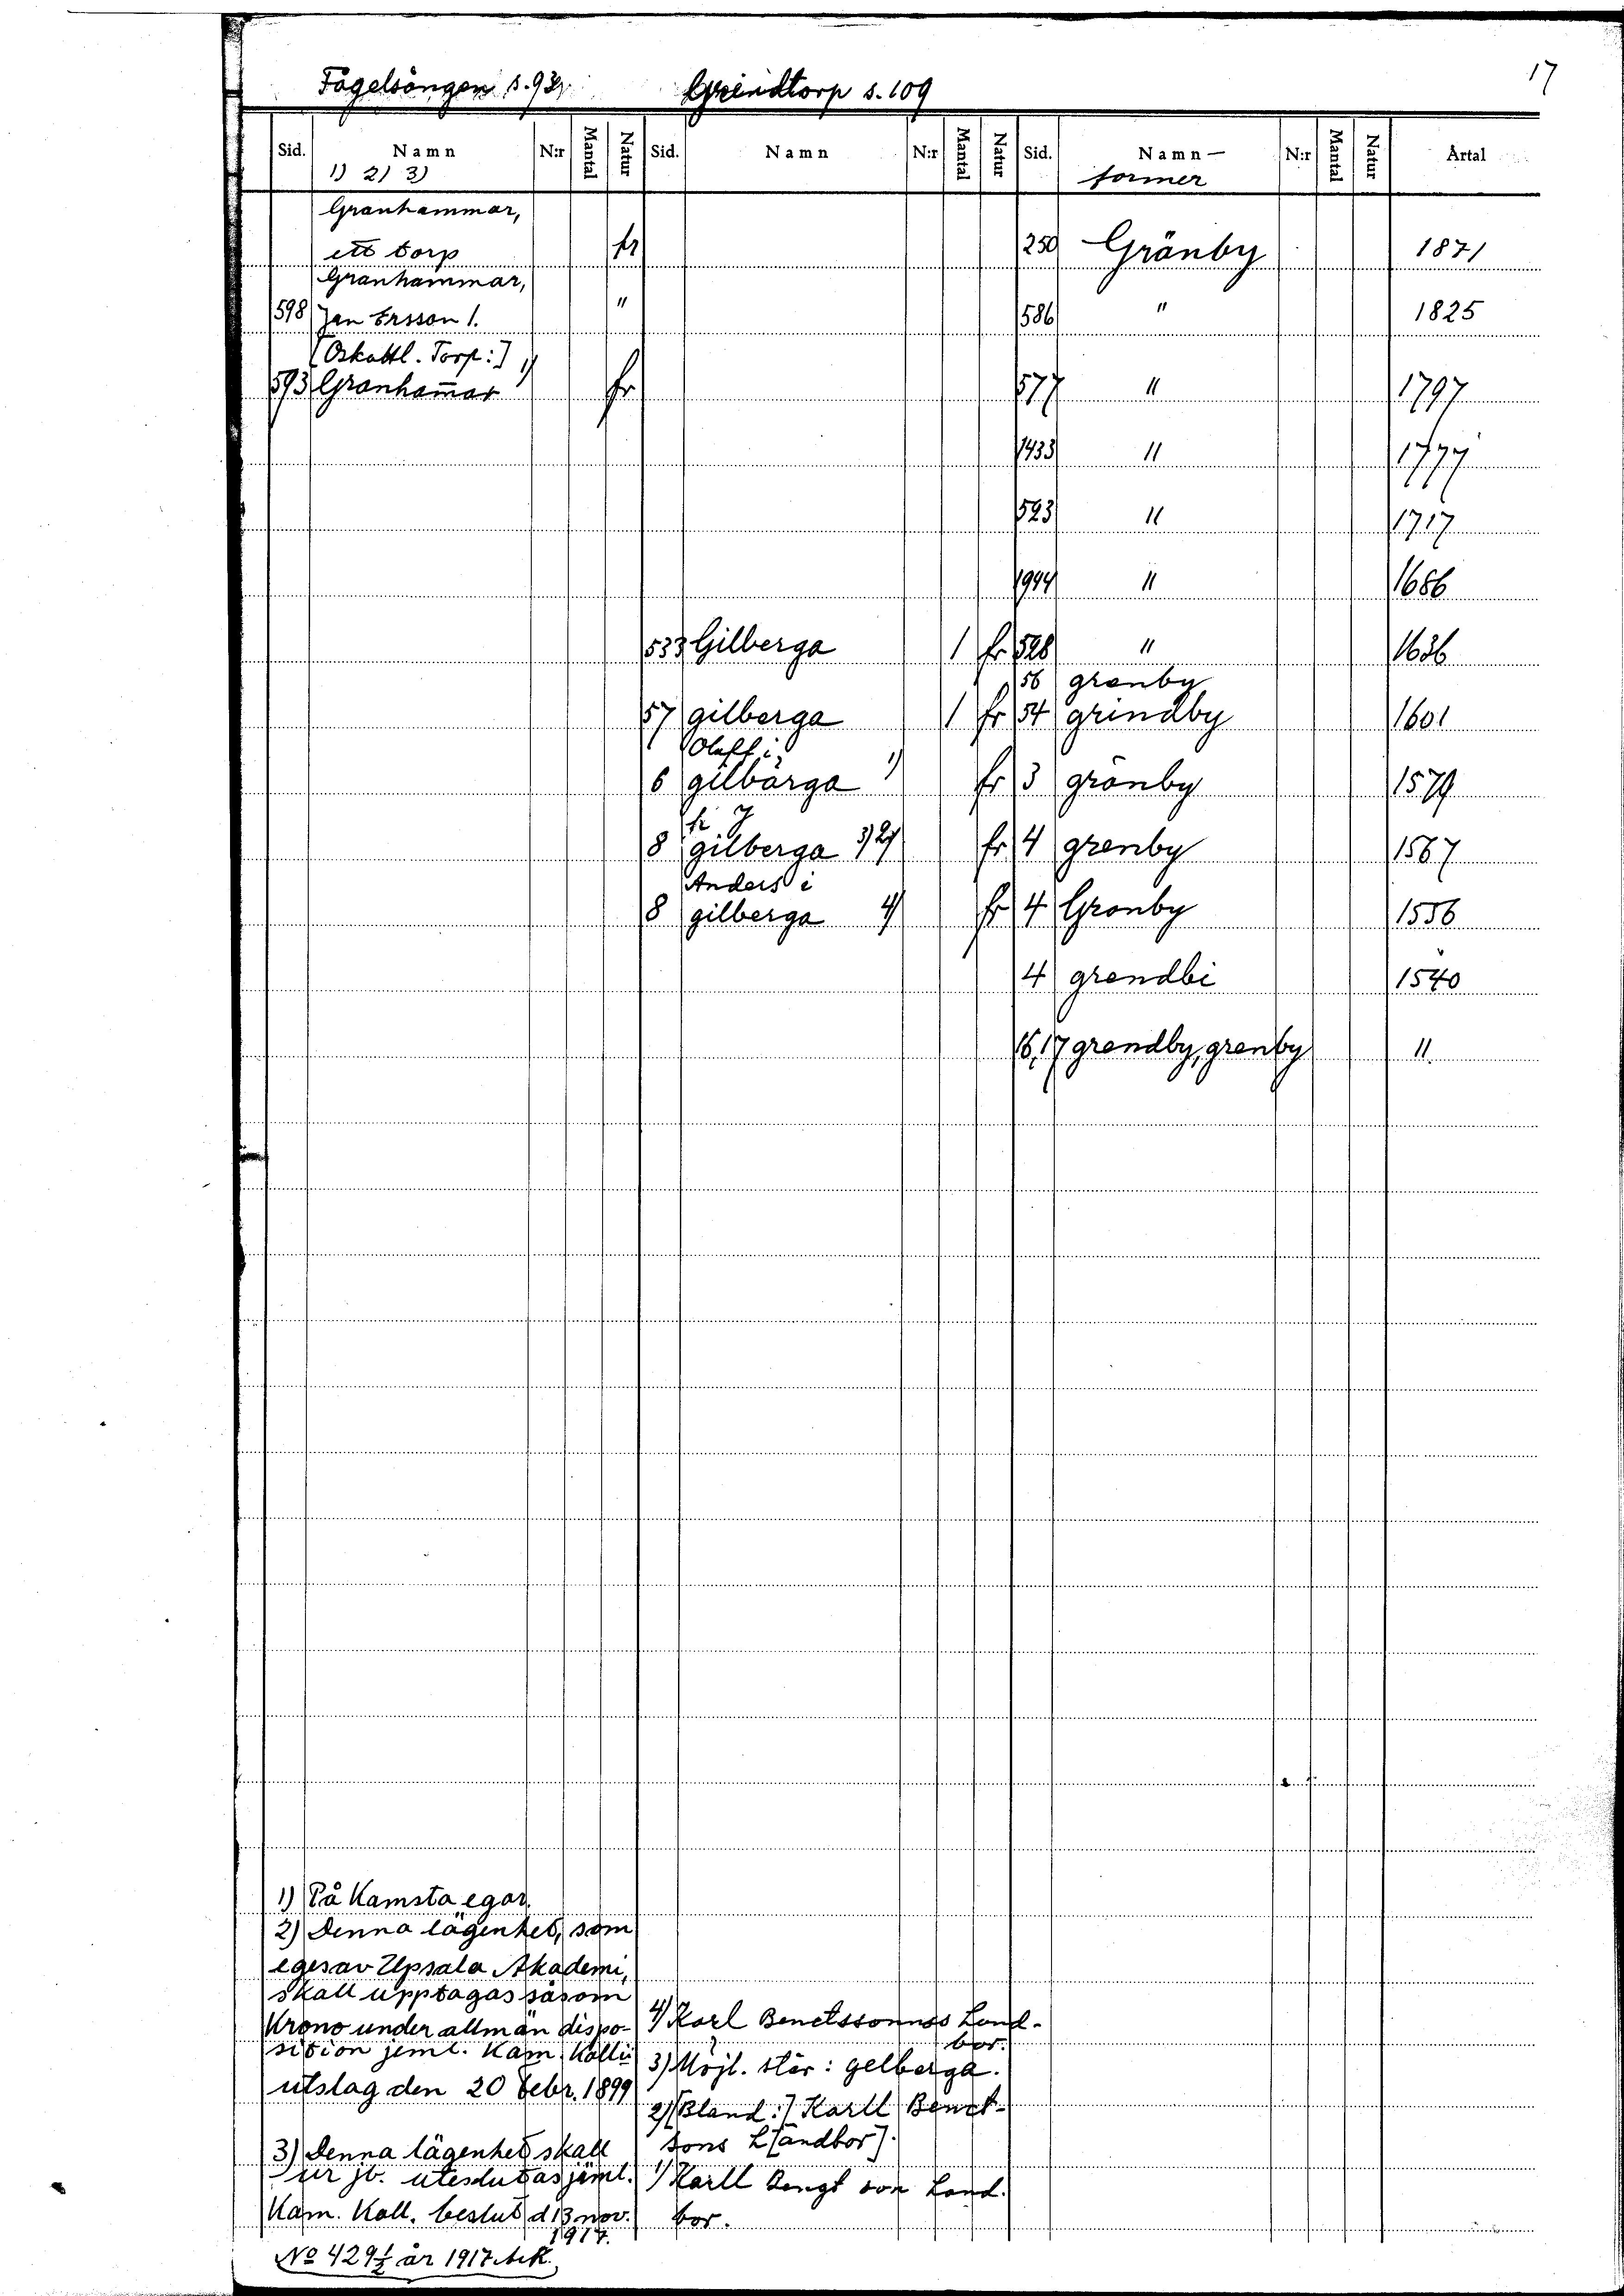 17
Fågelsången s. 93, Grindtorp s. 109
Sid. Namn N:r Mantal Natur Sid. Namn N:r Mantal Natur Sid. Namn- N:r Mantal Natur Årtal
1) 2) 3) former
Granhammar,
ett torp fr 250 Gränby 1871
Granhammar,
598 Jan Ersson 1. " 586 " 1825
[Oskattl. Torp:]
593 Granham̄ar 1) fr 577 " 1797
1433 " 1777
523 " 1717
1994 " 1686
533 Gilberga 1 fr 528 " 1636
56 granby
57 gilberga 1 fr 54 grindby 1601
Olaff i
6 gilbärga 1) fr 3 gränby 1579
8 gilberga 3) 2) fr 4 grenby 1567
Anders i
8 gilberga 4) fr 4 Gronby 1556
4 grendbi 1540
16, 17 grendby, grenby "
1) På Kamsta egor.
2) Denna lägenhet, som
eges av Upsala Akademi,
skall upptagas såsom
Krono under allmän dispo-
sition jeml. Kam. Kollii
utslag den 20 febr. 1899
3) Denna lägenhet skall
ur jb. uteslutas jäml.
Kam. Koll. beslut d 13 nov.
1917.
No 429½ år 1917 Ark.
4) Karl Benctssonns Land-
bor.
3) Möjl. står: gelberga.
2) [Bland:] Karll Benct-
sons L[andbor].
1) Karll Bengt son Land.
bor.